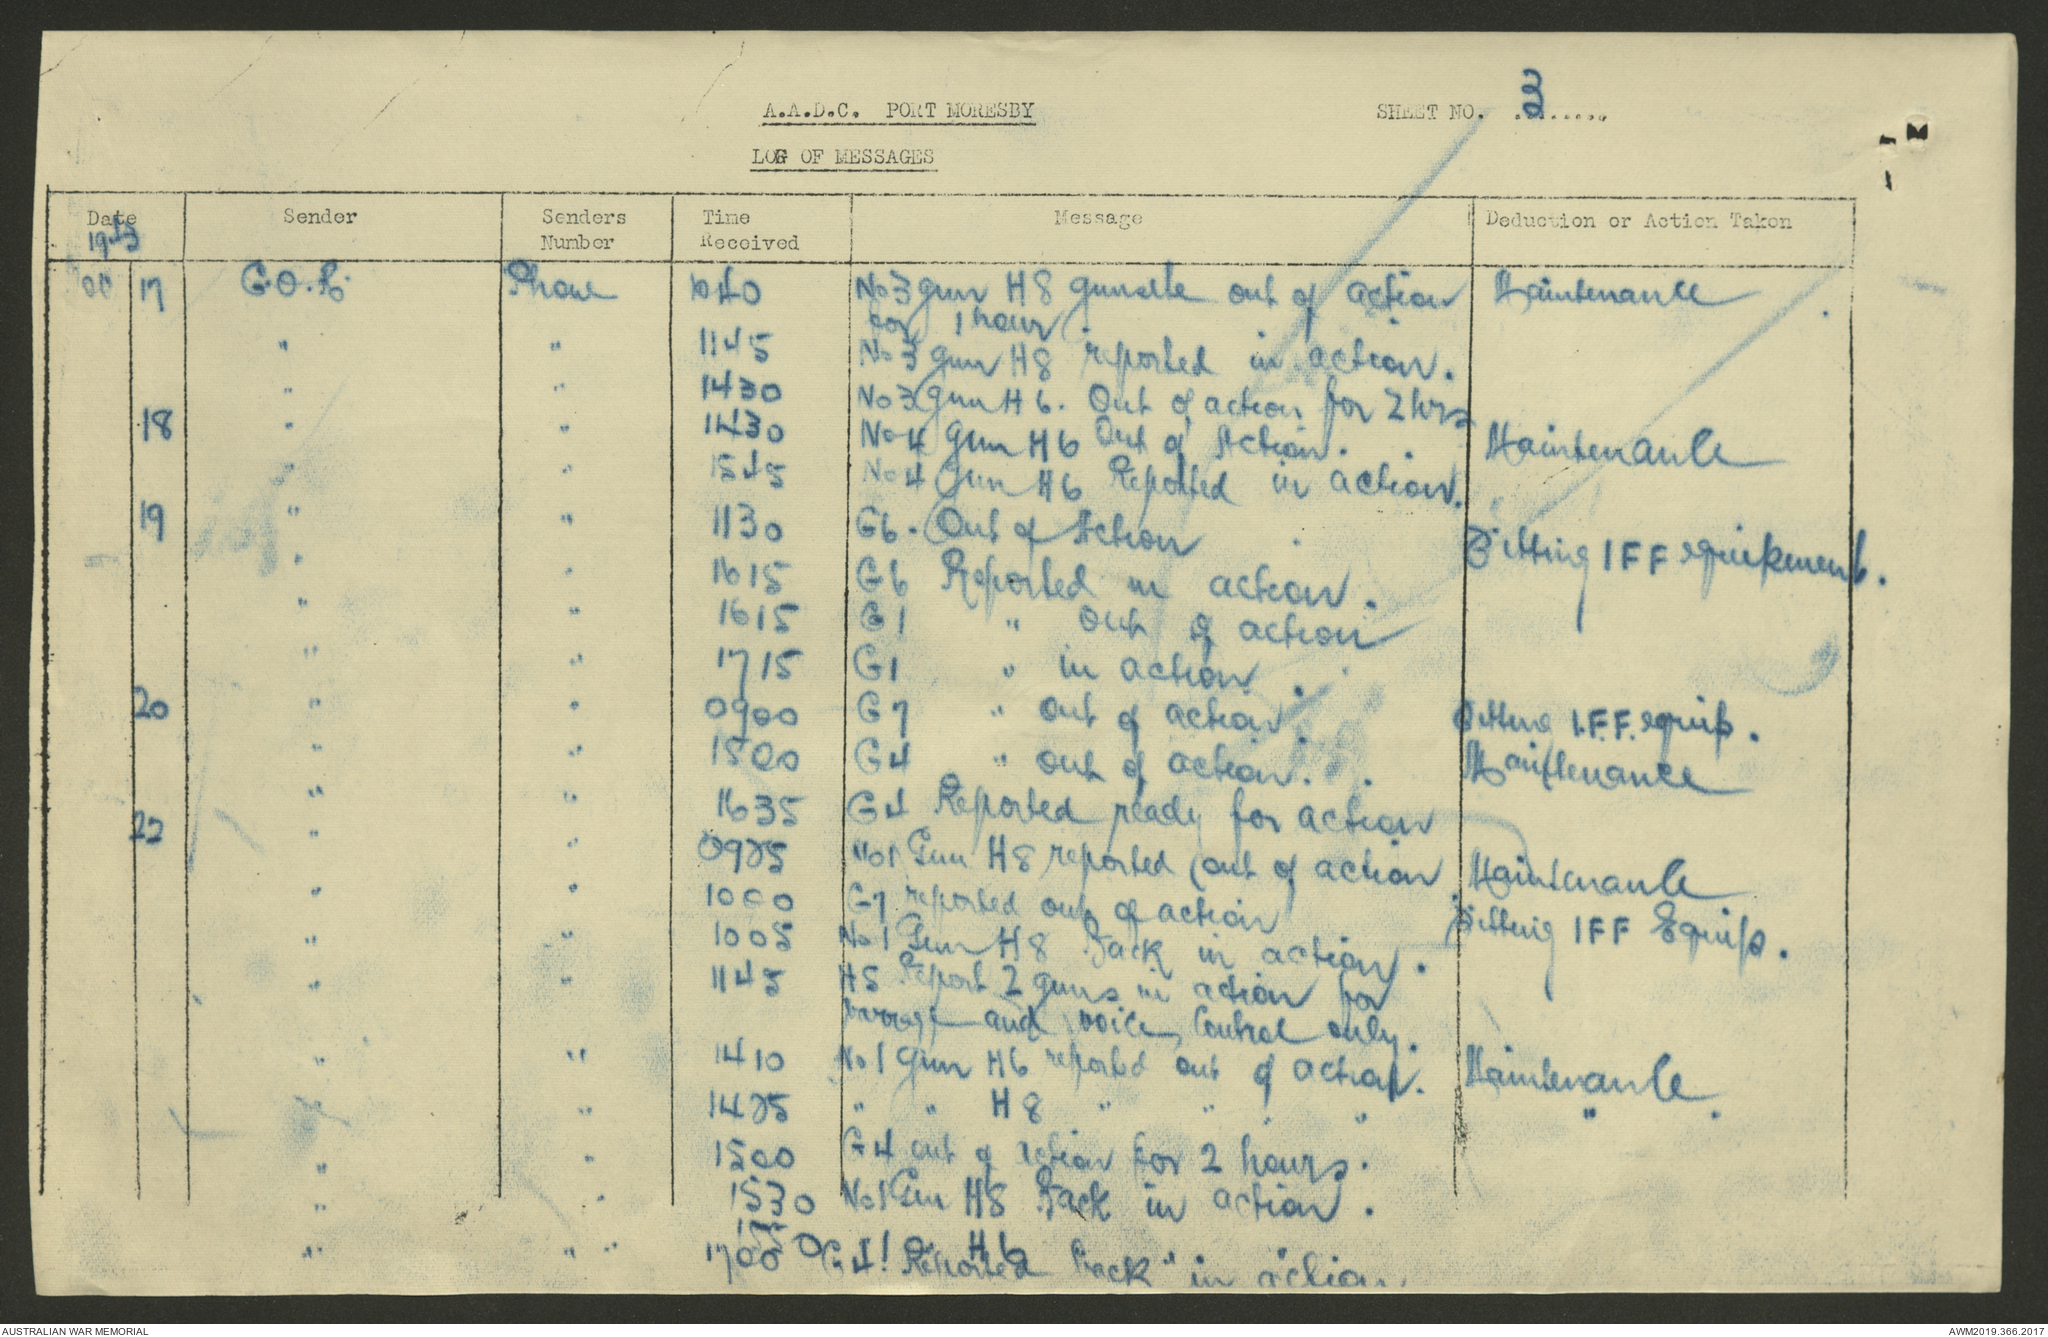 A.A.D.C. PORT MORESBY SHEET NO. 3
LOG OF MESSAGES
Date Sender Senders Time Message Deduction or Action Taken
1943 Number Received
17 G.O.R. Phone 1040 No3 gun H8 gunsite out of action Maintenance
for 1 hour.
" " 1145 No3 gun H8 reported in action.
" " 1430 No3 gun H6. Out of action for 2 hrs
18 " " 1430 No 4 gun H6 Out of Action. Maintenance
" " 1545 No 4 Gun H6 Reported in action.
19 " " 1130 G6. Out of Action Fitting IFF equipment.
" " 1615 G6 Reported in action.
" " 1615 G1 " Out of action
" " 1715 G1 " in action.
20 " " 0900 G7 " out of action. Fitting I.F.F. equip.
" " 1500 G4 " out of action. Maintenance
" " 1635 G4 Reported ready for action
22 " " 0925 No1 Gun H8 reported out of action Maintenance
" " 1000 G7 reported out of action Fitting IFF Equip.
" " 1005 No1 Gun H8 Back in action.
" " 1145 H5 Report 2 guns in action for
barrage and voice control only.
" " 1410 No 1 gun H6 reported out of action. Maintenance
" " 1425 " " H8 " " " " "
" " 1500 G4 out of action for 2 hours.
" " 1530 No1 Gun H8 Back in action.
" H6 "
" " 1700 G4 Reported back in action.
AUSTRALIAN WAR MEMORIAL AWM2019.366.2017